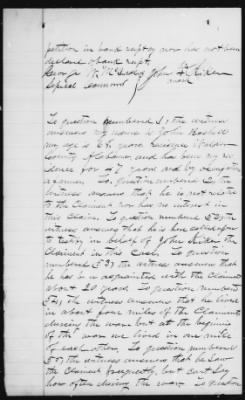 petition in bankruptcy nor has not been
declared bankrupt.
George W. McCurdy John Kiker
Special Comm
To question numbered 1, the witness
answers my name is John
my age is 64 years Residence
County Alabama and has been my res
idence for 47 years and by occupation
a farmer. To question numbered 2, the
witness answers that he is not related
to the Claimant nor has no interest in
this Claim. To question numbered 52, the
witness answers that he is here
to testify in behalf of John Kiker the
Claimant in this Case. To question
numbered 53, the witness answers that
he has been acquainted with the Claimant
about 20 years. To question numbered
54, the witness answers that he lived
in about four miles of the Claimant
during the war but at the beginning
of the war we lived in one mile
of each other. To question numbered
55, the witness answers that he saw
the Claimant frequently but cant say
how often during the war. To question